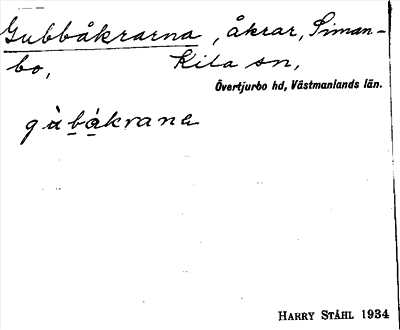 Gubbåkrarna, åkrar, Siman-
bo, Kila sn,
Övertjurbo hd, Västmanlands län.
gùbåkrana
HARRY STÅHL 1934